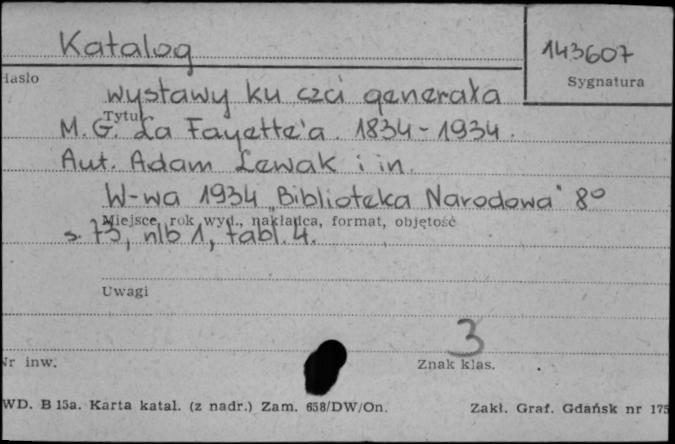 Katalog
143607
Hasło
Sygnatura
wystawy ku czci generała
Tytuł
M. G. La Fayette'a. 1834-1934.
Aut. Adam Lewak i in.
W-wa 1934 „Biblioteka Narodowa" 8°
Miejsce, rok wyd., nakładca, format, objętość
s. 73, nlb 1, tabl. 4.
Uwagi
3
Nr inw.
Znak klas.
WD. B 15a. Karta katal. (z nadr.) Zam. 658/DW/On.
Zakł. Graf. Gdańsk nr 175